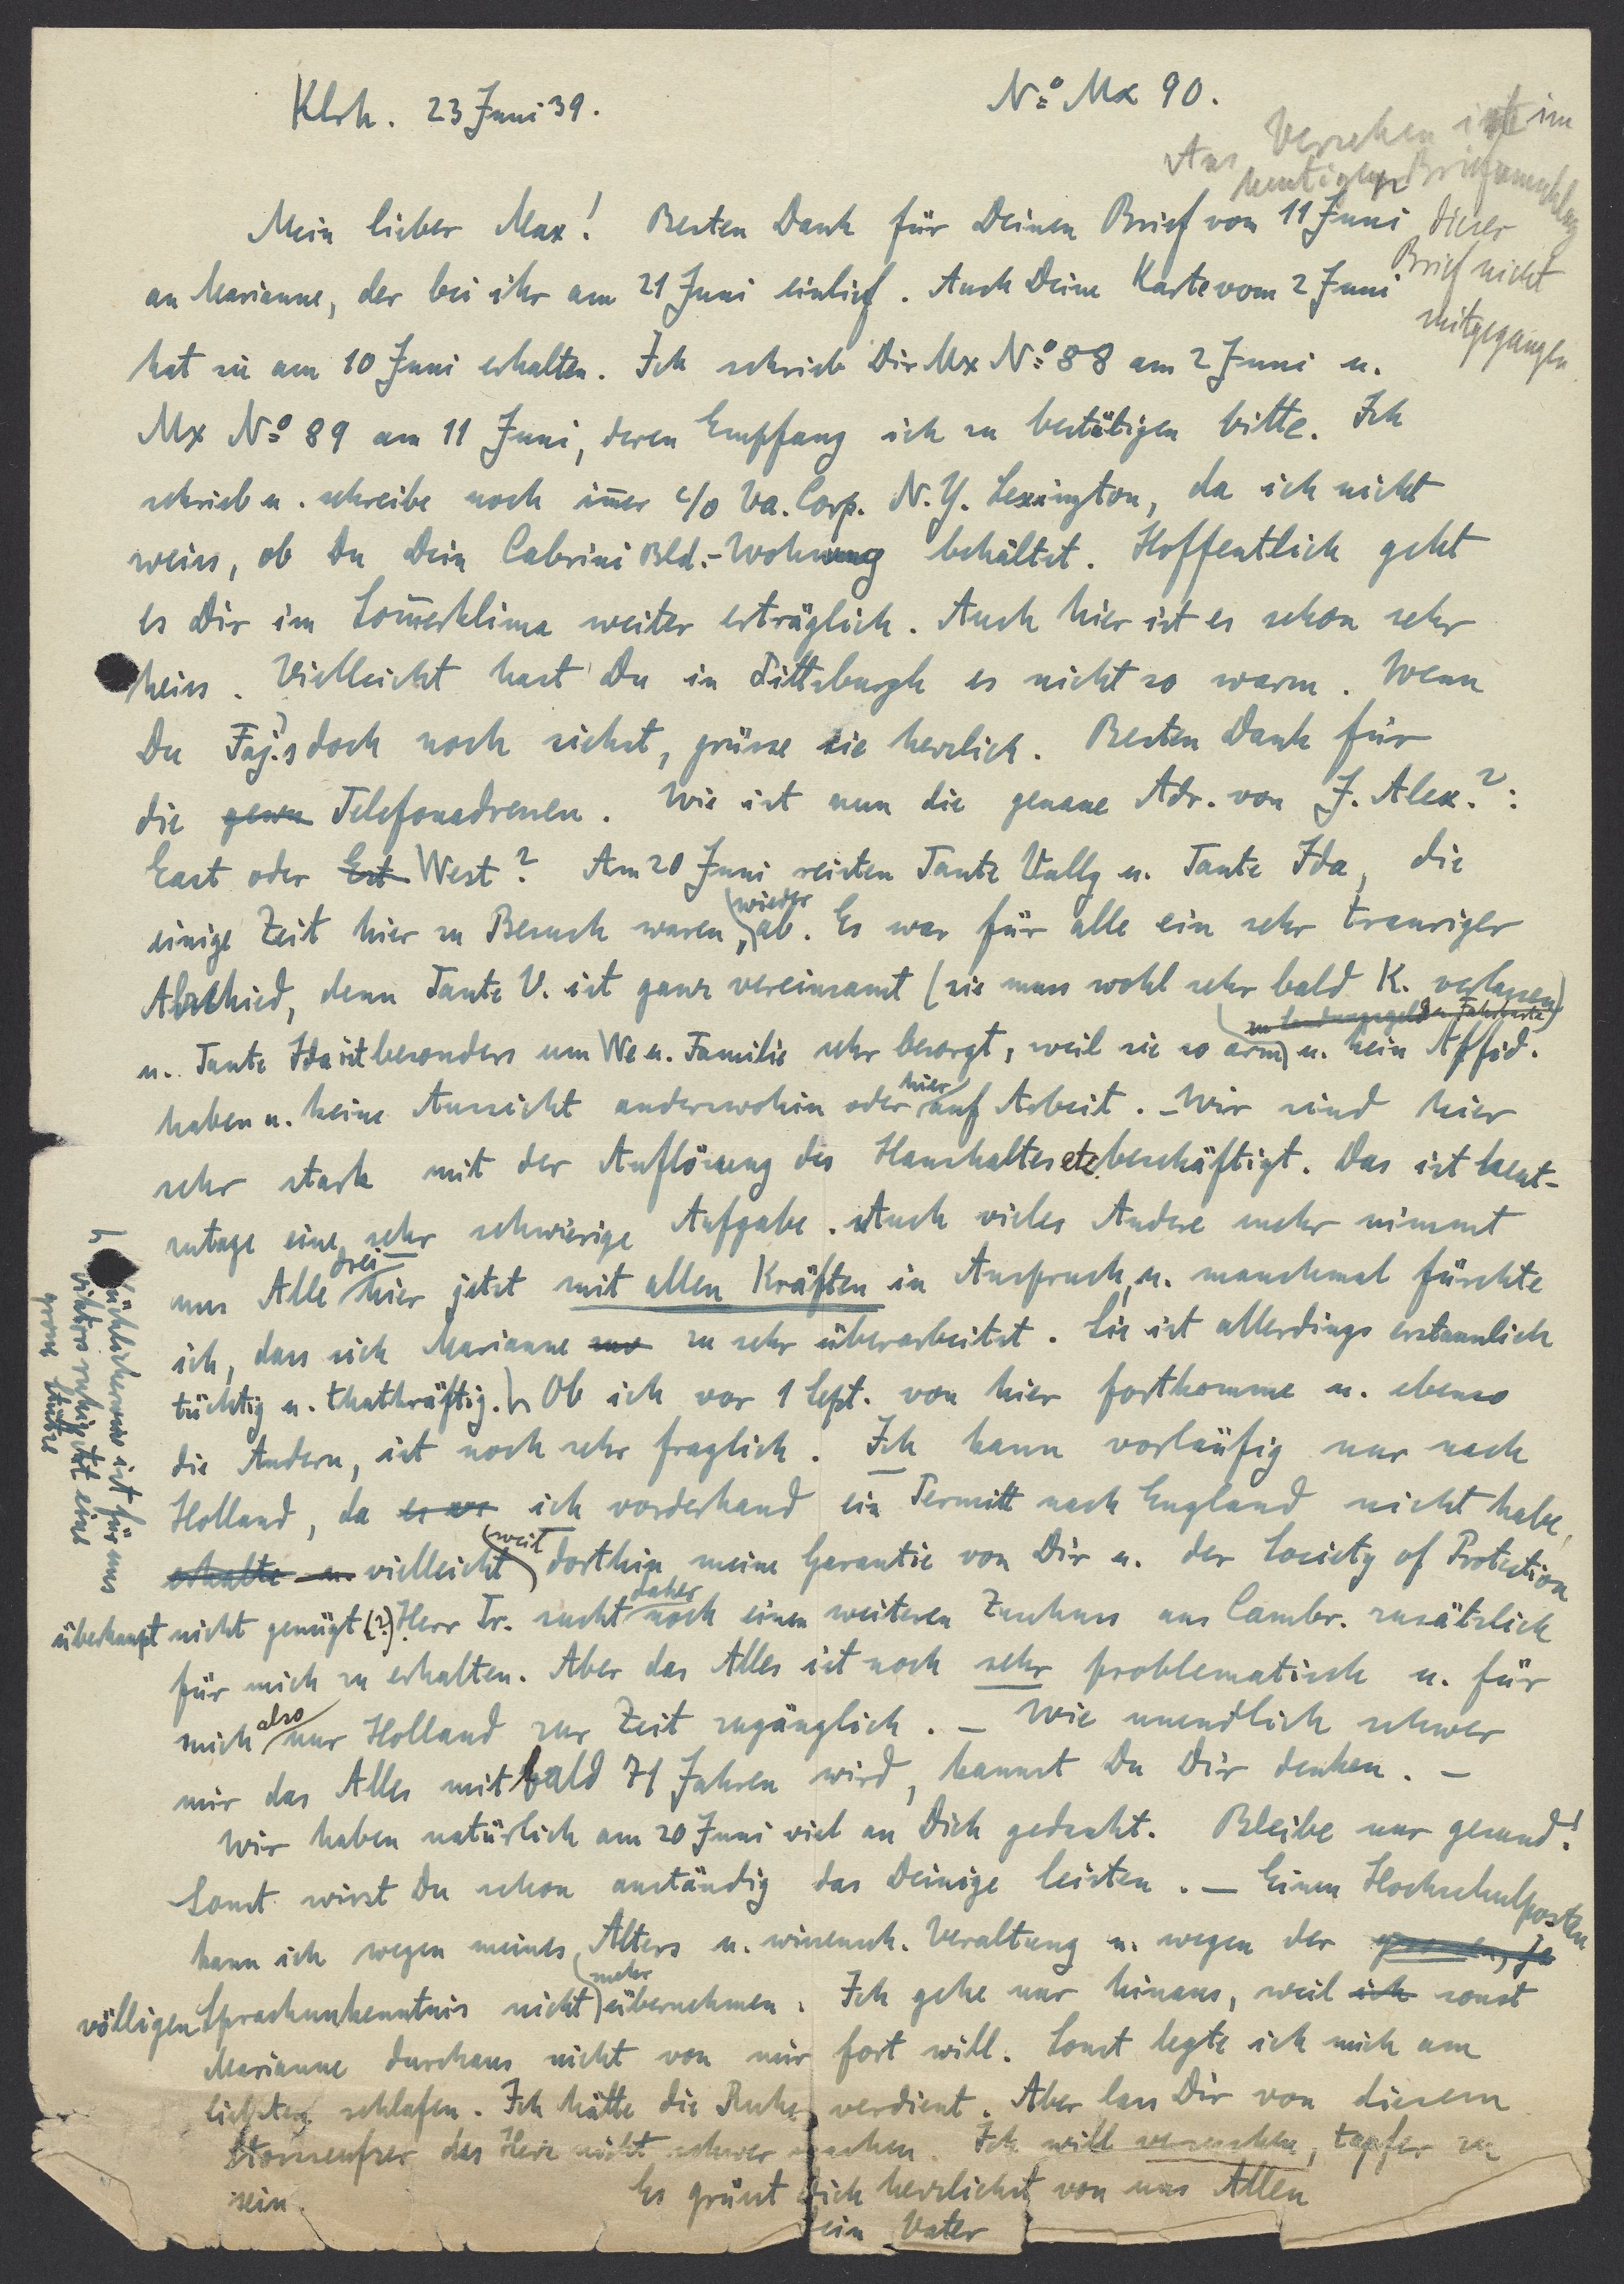 Klrh. 23 Juni 39.
No Mx 90.
Aus Versehen ist im
heutigen Briefumschlag
dieser
Brief nicht
mitgegangen
Mein lieber Max! Besten Dank für Deinen Brief von 11 Juni
an Marianne, der bei ihr am 21 Juni einlief. Auch Deine Karte vom 2 Juni
hat sie am 10 Juni erhalten. Ich schrieb Dir Mx No 88 am 2 Juni u.
Mx No 89 am 11 Juni, deren Empfang ich zu bestätigen bitte. Ich
schrieb u. schreibe noch im̅er c/o Va. Corp. N.Y. Lexington, da ich nicht
weiss, ob Du Dein Cabrini Bld.-Wohnung behältst. Hoffentlich geht
es Dir im Som̅erklima weiter erträglich. Auch hier ist es schon sehr
heiss. Vielleicht hast Du in Pittsburgh es nicht so warm. Wenn
Du Faj.'s doch noch siehst, grüsse sie herzlich. Besten Dank für
die genau Telefonadressen. Wie ist nun die genaue Adr. von J. Alex.?:
East oder Est West? Am 20 Juni reisten Tante Vally u. Tante Ida, die
einige Zeit hier zu Besuch waren, wieder ab. Es war für alle ein sehr trauriger
Abschied, denn Tante V. ist ganz vereinsamt (sie muss wohl sehr bald K. verlassen)
u. Tante Ida ist besonders um We u. Familie sehr besorgt, weil sie so arm u. kein Affid.
haben u. keine Aussicht anderswohin oder hier auf Arbeit. – Wir sind hier
sehr stark mit der Auflösung des Haushaltes etc. beschäftigt. Das ist heut-
zutage eine sehr schwierige Aufgabe. Auch vieles Andere mehr nimmt
uns Alle drei hier jetzt mit allen Kräften in Anspruch, u. manchmal fürchte
ich, dass sich Marianne zu sehr überarbeitet. Sie ist allerdings erstaunlich
tüchtig u. thatkräftig. Ob ich vor 1 Sept. von hier fortkomme u. ebenso
die Andern, ist noch sehr fraglich. Ich kann vorläufig nur nach
Holland, da ich vorderhand ein Permitt nach England nicht habe,
erhalte u. vielleicht weit dorthin meine Garantie von Dir u. der Society of Protection
überhaupt nicht genügt (?) Herr Tr. sucht daher noch einen weiteren Zuschuss aus Cambr. zusätzlich
für mich zu erhalten. Aber das Alles ist noch sehr problematisch u. für
mich also nur Holland zur Zeit zugänglich. – Wie unendlich schwer
mir das Alles mit bald 71 Jahren wird, kannst Du Dir denken. –
Wir haben natürlich am 20 Juni viel an Dich gedacht. Bleibe nur gesund!
Sonst wirst Du schon anständig das Deinige leisten. – Einen Hochschulposten
kann ich wegen meines Alters u. wissensch. Veraltung u. wegen der
völligen Sprachunkenntnis nicht mehr übernehmen. Ich gehe nur hinaus, weil ich sonst
Marianne durchaus nicht von mir fort will. Sonst legte ich mich am
liebsten schlafen. Ich hätte die Ruhe verdient. Aber lass Dir von diesem
Stossseufzer das Herz nicht schwer machen. Ich will versuchen, tapfer zu
sein. Es grüsst Dich herzlichst von uns Allen
Dein Vater
ist für uns
eine
grosse Stütze